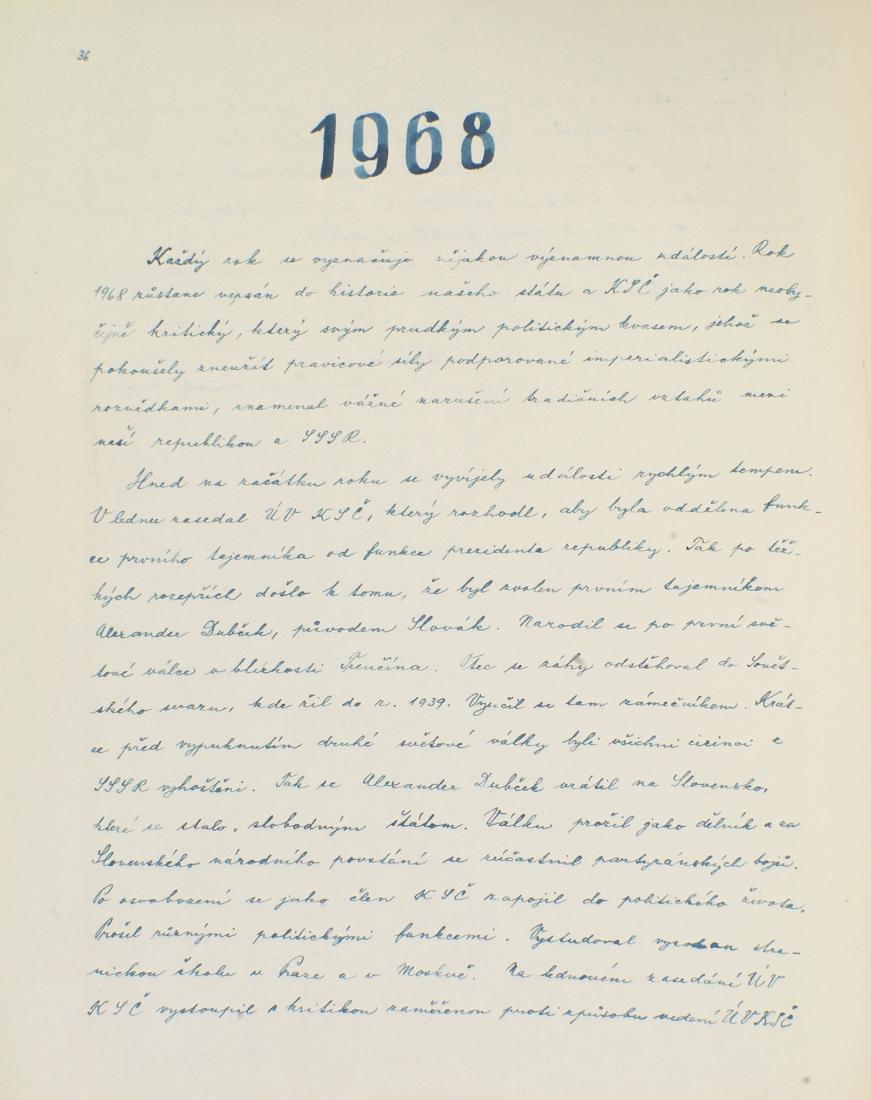 36
1968
Každý rok se vyznačuje nějakou významnou událostí. Rok
1968 zůstane vepsán do historie našeho státu a KSČ jako rok neoby-
čejně kritický, který svým prudkým politickým kvasem, jehož se
pokoušely zneužít pravicové síly podporované imperialistickými
rozvědkami, znamenal vážné narušení tradičních vztahů mezi
naší republikou a SSSR.
Hned na začátku roku se vyvíjely události rychlým tempem.
V lednu zasedal ÚV KSČ, který rozhodl, aby byla oddělena funk-
ce prvního tajemníka od funkce prezidenta republiky. Tak po těž-
kých rozepřích došlo k tomu, že byl zvolen prvním tajemníkem
Alexander Dubček, původem Slovák. Narodil se po první svě-
tové válce v blízkosti Trenčína. Otec se záhy odstěhoval do Sovět-
ského svazu, kde žil do r. 1939. Vyučil se tam zámečníkem. Krát-
ce před vypuknutím druhé světové války byli všichni cizinci z
SSSR vyhoštěni. Tak se Alexander Dubček vrátil na Slovensko,
které se stalo „slobodným štátom. Válku prožil jako dělník a za
Slovenského národního povstání se zúčastnil partyzánských bojů.
Po osvobození se jako člen KSČ zapojil do politického života.
Prošel různými politickými funkcemi. Vystudoval vysokou stra-
nickou školu v Praze a v Moskvě. Na lednovém zasedání ÚV
KSČ vystoupil s kritikou zaměřenou proti způsobu vedení ÚV KSČ